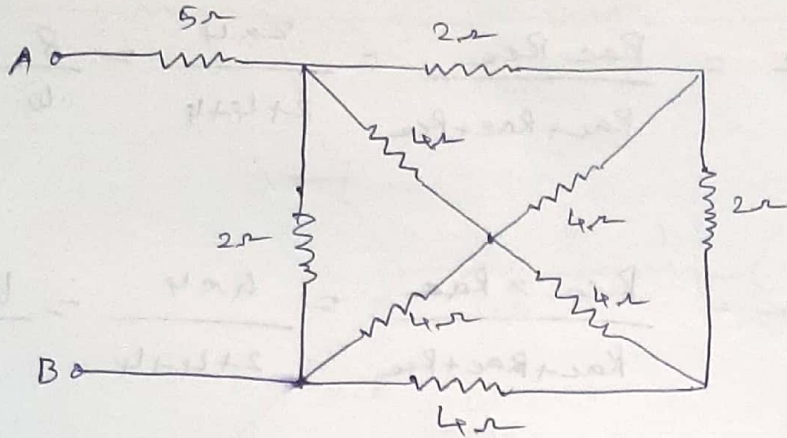 5Ω
A
2Ω
4Ω
4Ω
2Ω
2Ω
4Ω
4Ω
B
4Ω